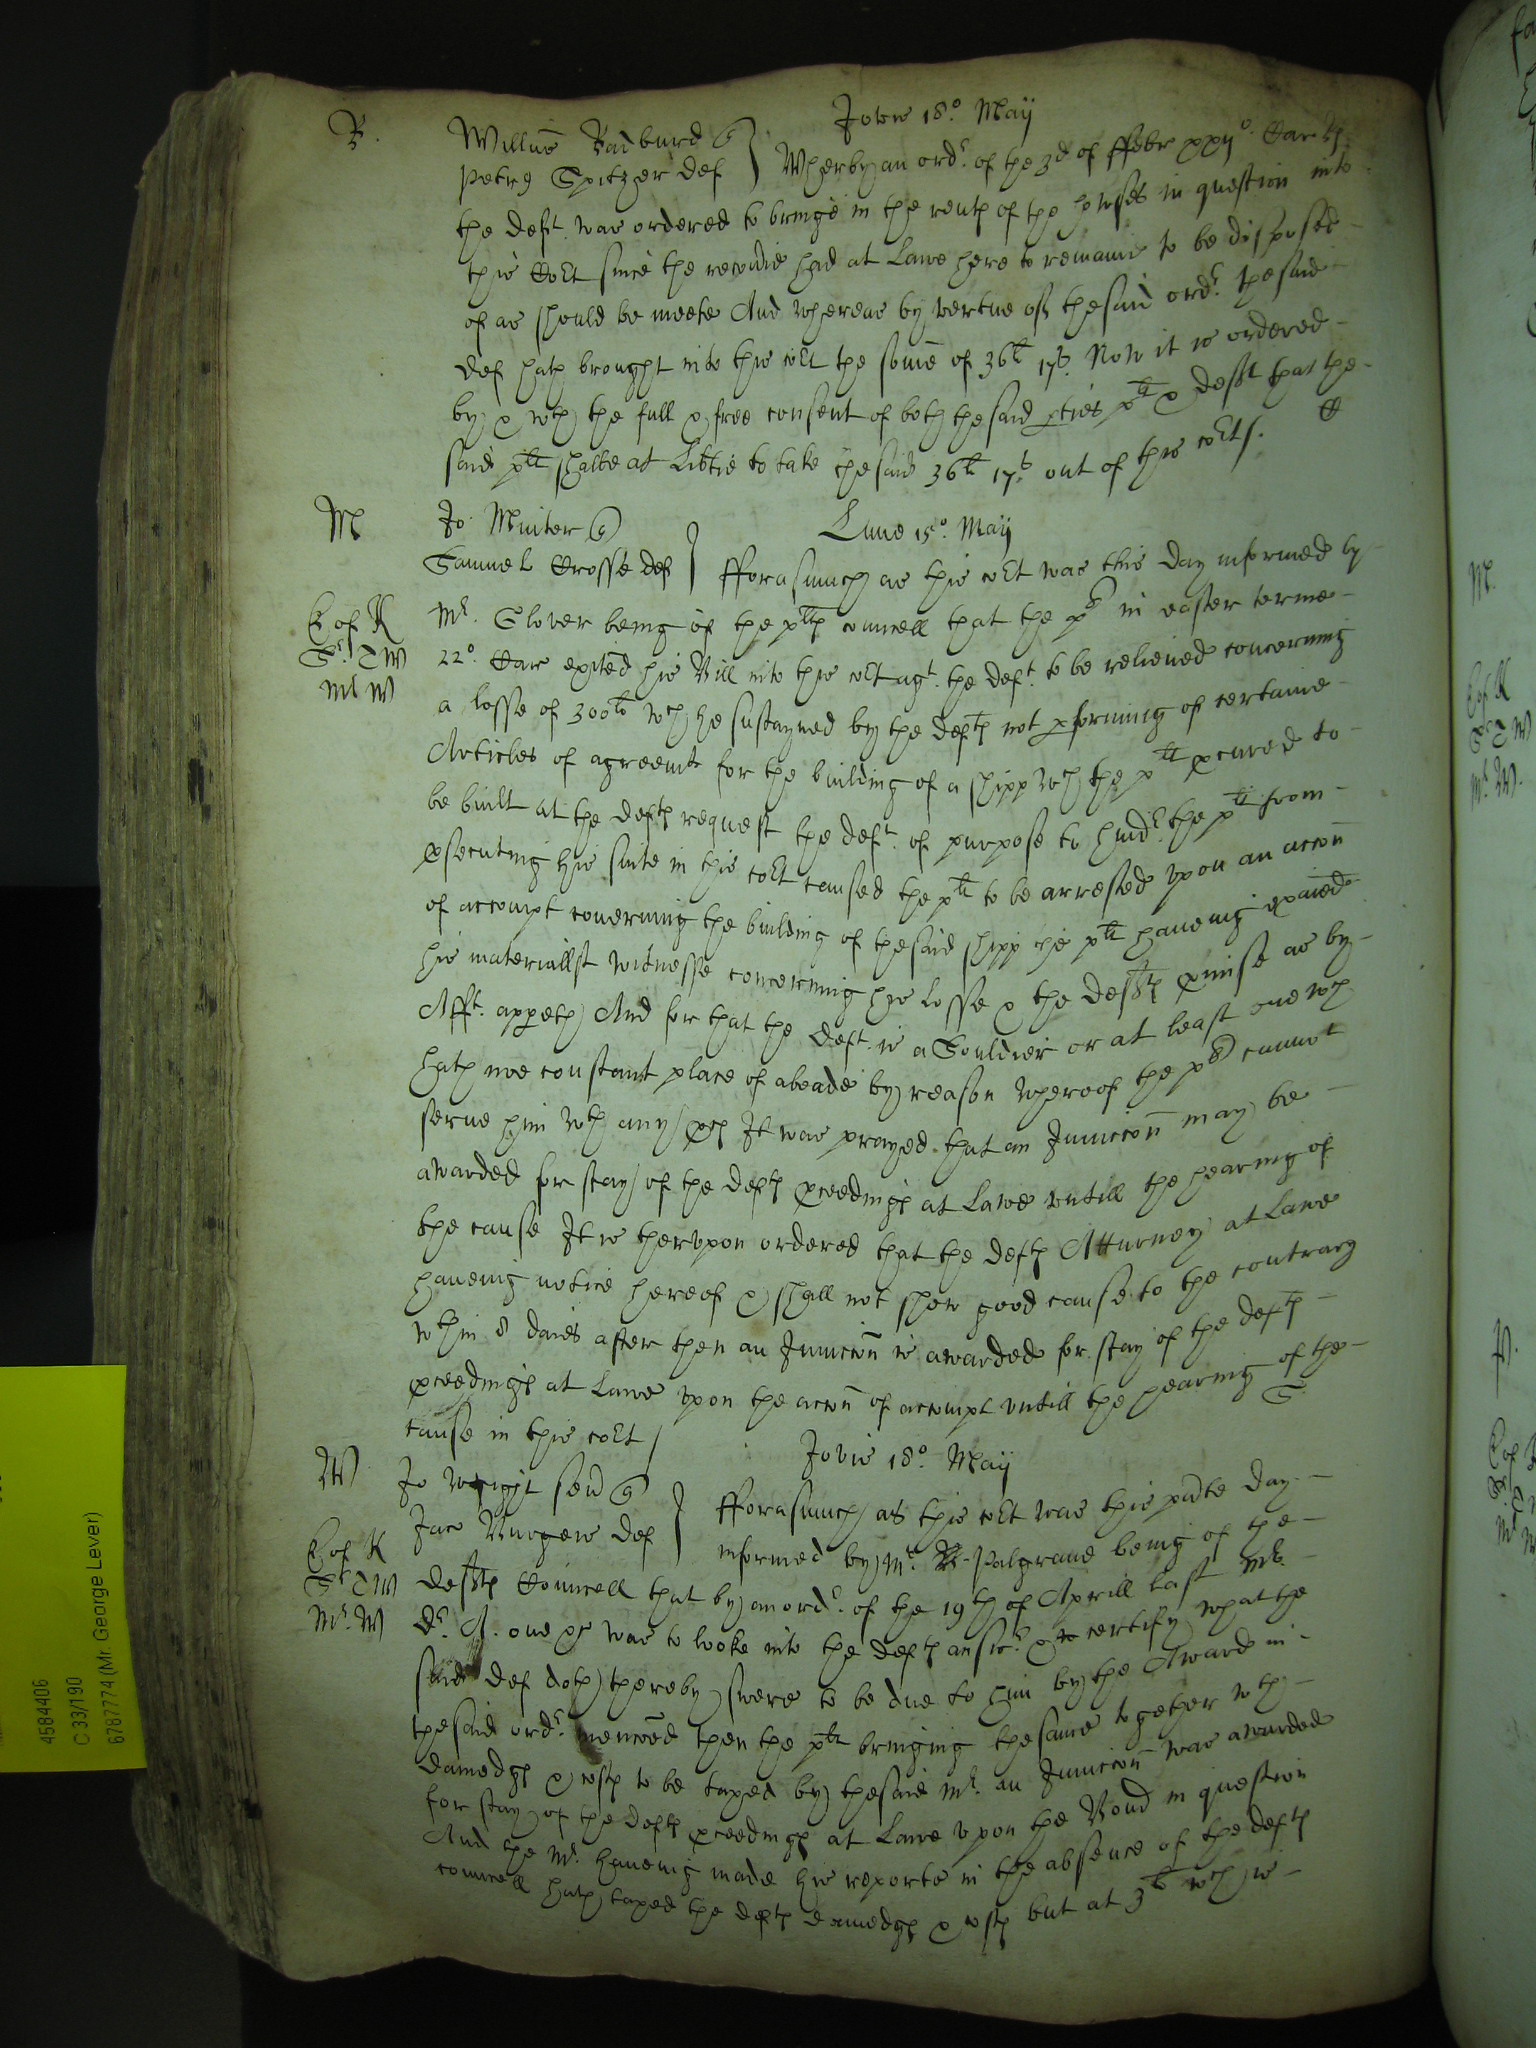 Jovis 18° Maij
R. Willus Radburd q
Petrus Spitzer def } Wherby an ordr. of the 3d of ffebr xxij° Car Rs
the deft. was ordered to bringe in the rents of the howses in question into
this Cort since the recoverie had at Lawe here to remaine to be disposed
of as should be meete And whereas by vertue of thesaid ordr. thesaid
def hath brought into this cort the some of 36li 17s. Now it is ordered
by & wth the full & free consent of both thesaid pties plt & deft that the
said plt shalbe at Libtie to take thesaid 36li 17s. out of this corts.
M Jo: Minter q
Lune 15°. Maij
Samuel Crosse def } fforasmuch as this cort was this day informed by
Mr. Glover being of the plts councell that the pl in easter terme
C of R
Sr. T W
Mr W
22°. Car exited his Bill into this cort agt. the deft. to be relieved concerning
a losse of 300li wch he sustayned by the defts not pforming of certaine
Articles of agreemts for the building of a shipp wch the plt pcured to
be built at the defts request the deft. of purpose to hindr. the plt from
psecuting his suite in this cort caused the plt to be arrested upon an accon
of accompt concerning the building of thesaid shipp the plt haveing exaied
his materiallst witnesse concerning his losse & the defts pmise as by
Afft. appeth And for that the deft. is a Souldier or at least one wch
hath noe constant place of aboade by reason whereof the pl cannot
serve him wth any pcs It was prayed that an Iniunccon may be
awarded for stay of the defts pceedings at Lawe untill the hearing of
the cause It is therupon ordered that the defts Atturney at Lawe
haveing notice hereof & shall not shew good cause to the contrary
wthin 8 daies after then an Iniunccon is awarded for stay of the defts
pceedings at Lawe upon the accon of accompt untill the hearing of the
cause in this cort /
Jovis 18°. Maij
W Jo Wright sen q
Jac Burges def } fforasmuch as this cort was this pnte day
informed by Mr. Palgrave being of the
C of R
Sr T W
Mr. W
defts Councell that by an ordr. of the 19th of Aprill last Mr.
Dr. A. one &c was to looke into the defts answr. & to certify what the
said def doth thereby sweare to be due to him by the Award in
thesaid ordr. menconed then the plt bringing thesame together wth
damedgs & costs to be taxed by thesaid Mr. an Iniunccon was awarded
for stay of the defts pceedings at Lawe upon the Bond in question
And the Mr. haveing made his reporte in the absence of the defts
councell hath taxed the defts damedgs & costs but at 3li wch is
4584406
C 33/190
6787774 (Mr. George Lever)
M.
C of R
Sr T W
Mr. W.